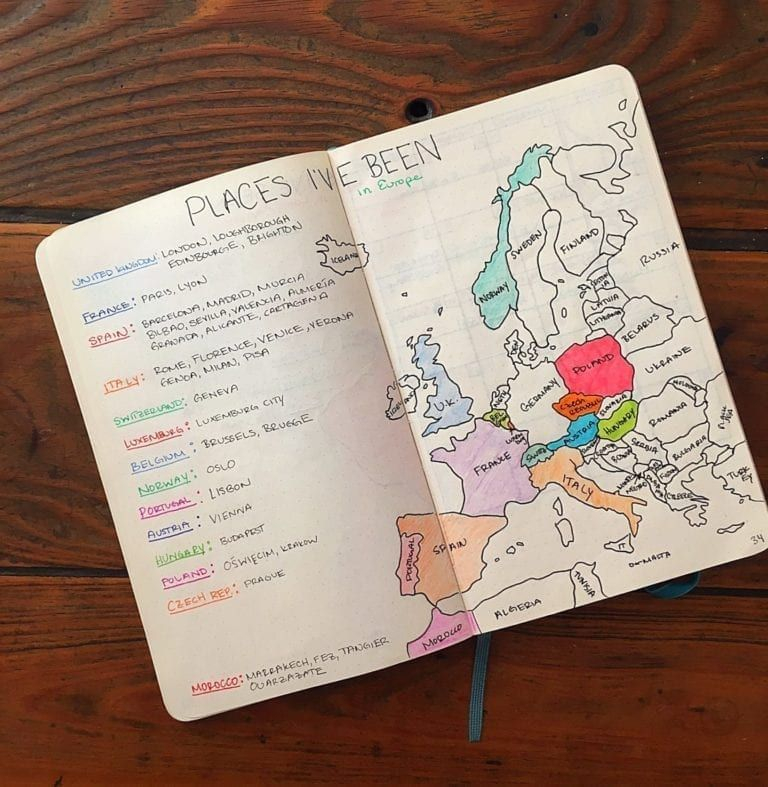 PLACES I'VE BEEN
in Europe
UNITED KINGDOM: LONDON, LOUGHBOROUGH
EDINBOURGE, BRIGHTON
FRANCE: PARIS, LYON
SPAIN: BARCELONA, MADRID, MURCIA
BILBAO, SEVILLA, VALENCIA, ALMERÍA
GRANADA, ALICANTE, CARTAGENA
ITALY: ROME, FLORENCE, VENICE, VERONA
GENOA, MILAN, PISA
SWITZERLAND: GENEVA
LUXEMBURG: LUXEMBURG CITY
BELGIUM: BRUSSELS, BRUGGE
NORWAY: OSLO
PORTUGAL: LISBON
AUSTRIA: VIENNA
HUNGARY: BUDAPEST
POLAND: OŚWIĘCIM, KRAKOW
CZECH REP.: PRAGUE
MOROCCO: MARRAKECH, FEZ, TANGIER
OUARZAZATE
ICELAND
NORWAY
SWEDEN
FINLAND
RUSSIA
LATVIA
LITHUANIA
BELARUS
DEN
IRELAND
U.K.
GERMANY
POLAND
UKRAINE
BEL
CZECH
REPUBLIC
SLOVAKIA
MOLDOVA
FRANCE
SWITZ
AUSTRIA
HUNGARY
ROMANIA
SERBIA
BULGARIA
ITALY
GREECE
TURK
EY
PORTUGAL
SPAIN
MALTA
MOROCCO
ALGERIA
TUNISIA
34